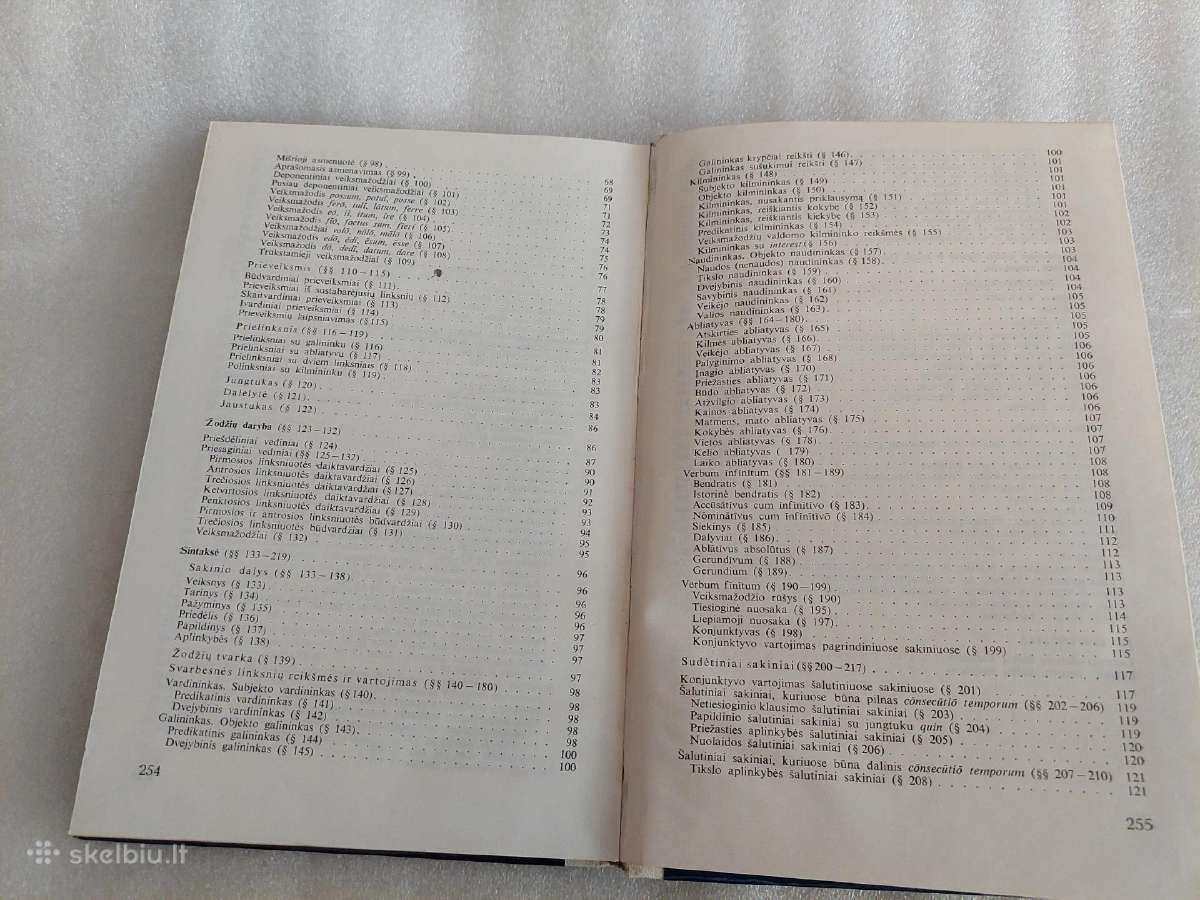 Mišrioji asmenuotė (§ 98) 68
Aprašomasis asmenavimas (§ 99) 69
Deponentiniai veiksmažodžiai (§ 100) 69
Pusiau deponentiniai veiksmažodžiai (§ 101) 71
Veiksmažodis possum, potuī, posse (§ 102) 71
Veiksmažodis ferō, tulī, lātum, ferre (§ 103) 72
Veiksmažodis eō, iī, itum, īre (§ 104) 73
Veiksmažodis fīō, factus sum, fierī (§ 105) 74
Veiksmažodžiai volō, nōlō, mālō (§ 106) 74
Veiksmažodis edō, ēdī, ēsum, ēsse (§ 107) 75
Veiksmažodis dō, dedī, datum, dare (§ 108) 76
Trūkstamieji veiksmažodžiai (§ 109) 76
Prieveiksmis (§§ 110–115) 77
Būdvardiniai prieveiksmiai (§ 111) 77
Prieveiksmiai iš sustabarėjusių linksnių (§ 112) 78
Skaitvardiniai prieveiksmiai (§ 113) 78
Įvardiniai prieveiksmiai (§ 114) 79
Prieveiksmių laipsniavimas (§ 115) 79
Prielinksnis (§§ 116–119) 80
Prielinksniai su galininku (§ 116) 81
Prielinksniai su abliatyvu (§ 117) 81
Prielinksniai su dviem linksniais (§ 118) 82
Polinksniai su kilmininku (§ 119) 83
Jungtukas (§ 120) 83
Dalelytė (§ 121) 83
Jaustukas (§ 122) 84
Žodžių daryba (§§ 123–132) 86
Priešdėliniai vediniai (§ 124) 86
Priesaginiai vediniai (§§ 125–132) 87
Pirmosios linksniuotės daiktavardžiai (§ 125) 90
Antrosios linksniuotės daiktavardžiai (§ 126) 90
Trečiosios linksniuotės daiktavardžiai (§ 127) 91
Ketvirtosios linksniuotės daiktavardžiai (§ 128) 92
Penktosios linksniuotės daiktavardžiai (§ 129) 93
Pirmosios ir antrosios linksniuotės būdvardžiai (§ 130) 93
Trečiosios linksniuotės būdvardžiai (§ 131) 94
Veiksmažodžiai (§ 132) 95
Sintaksė (§§ 133–219) 95
Sakinio dalys (§§ 133–138) 96
Veiksnys (§ 133) 96
Tarinys (§ 134) 96
Pažyminys (§ 135) 96
Priedėlis (§ 136) 96
Papildinys (§ 137) 97
Aplinkybės (§ 138) 97
Žodžių tvarka (§ 139) 97
Svarbesnės linksnių reikšmės ir vartojimas (§§ 140–180) 97
Vardininkas. Subjekto vardininkas (§ 140) 98
Predikatinis vardininkas (§ 141) 98
Dvejybinis vardininkas (§ 142) 98
Galininkas. Objekto galininkas (§ 143) 98
Predikatinis galininkas (§ 144) 100
Dvejybinis galininkas (§ 145) 100
254
Galininkas krypčiai reikšti (§ 146) 100
Galininkas sušukimui reikšti (§ 147) 101
Kilmininkas (§ 148) 101
Subjekto kilmininkas (§ 149) 101
Objekto kilmininkas (§ 150) 101
Kilmininkas, nusakantis priklausymą (§ 151) 101
Kilmininkas, reiškiantis kokybę (§ 152) 101
Kilmininkas, reiškiantis kiekybę (§ 153) 102
Predikatinis kilmininkas (§ 154) 102
Veiksmažodžių valdomo kilmininko reikšmės (§ 155) 103
Kilmininkas su interest (§ 156) 103
Naudininkas. Objekto naudininkas (§ 157) 103
Naudos (nenaudos) naudininkas (§ 158) 104
Tikslo naudininkas (§ 159) 104
Dvejybinis naudininkas (§ 160) 104
Savybinis naudininkas (§ 161) 104
Veikėjo naudininkas (§ 162) 105
Valios naudininkas (§ 163) 105
Abliatyvas (§§ 164–180) 105
Atskirties abliatyvas (§ 165) 105
Kilmės abliatyvas (§ 166) 106
Veikėjo abliatyvas (§ 167) 106
Palyginimo abliatyvas (§ 168) 106
Įnagio abliatyvas (§ 170) 106
Priežasties abliatyvas (§ 171) 106
Būdo abliatyvas (§ 172) 106
Atžvilgio abliatyvas (§ 173) 106
Kainos abliatyvas (§ 174) 107
Matmens, mato abliatyvas (§ 175) 107
Kokybės abliatyvas (§ 176) 107
Vietos abliatyvas (§ 178) 107
Kelio abliatyvas ( 179) 107
Laiko abliatyvas (§ 180) 108
Verbum īnfīnītum (§§ 181–189) 108
Bendratis (§ 181) 108
Istorinė bendratis (§ 182) 108
Accūsātīvus cum īnfīnītīvō (§ 183) 109
Nōminātīvus cum īnfīnītīvō (§ 184) 110
Siekinys (§ 185) 111
Dalyviai (§ 186) 112
Ablātīvus absolūtus (§ 187) 112
Gerundīvum (§ 188) 113
Gerundium (§ 189) 113
Verbum fīnītum (§ 190–199) 113
Veiksmažodžio rūšys (§ 190) 113
Tiesioginė nuosaka (§ 195) 114
Liepiamoji nuosaka (§ 197) 115
Konjunktyvas (§ 198) 115
Konjunktyvo vartojimas pagrindiniuose sakiniuose (§ 199) 115
Sudėtiniai sakiniai (§§ 200–217) 117
Konjunktyvo vartojimas šalutiniuose sakiniuose (§ 201) 117
Šalutiniai sakiniai, kuriuose būna pilnas cōnsecūtiō temporum (§§ 202–206) 119
Netiesioginio klausimo šalutiniai sakiniai (§ 203) 119
Papildinio šalutiniai sakiniai su jungtuku quīn (§ 204) 119
Priežasties aplinkybės šalutiniai sakiniai (§ 205) 120
Nuolaidos šalutiniai sakiniai (§ 206) 120
Šalutiniai sakiniai, kuriuose būna dalinis cōnsecūtiō temporum (§§ 207–210) 121
Tikslo aplinkybės šalutiniai sakiniai (§ 208) 121
255
skelbiu.lt